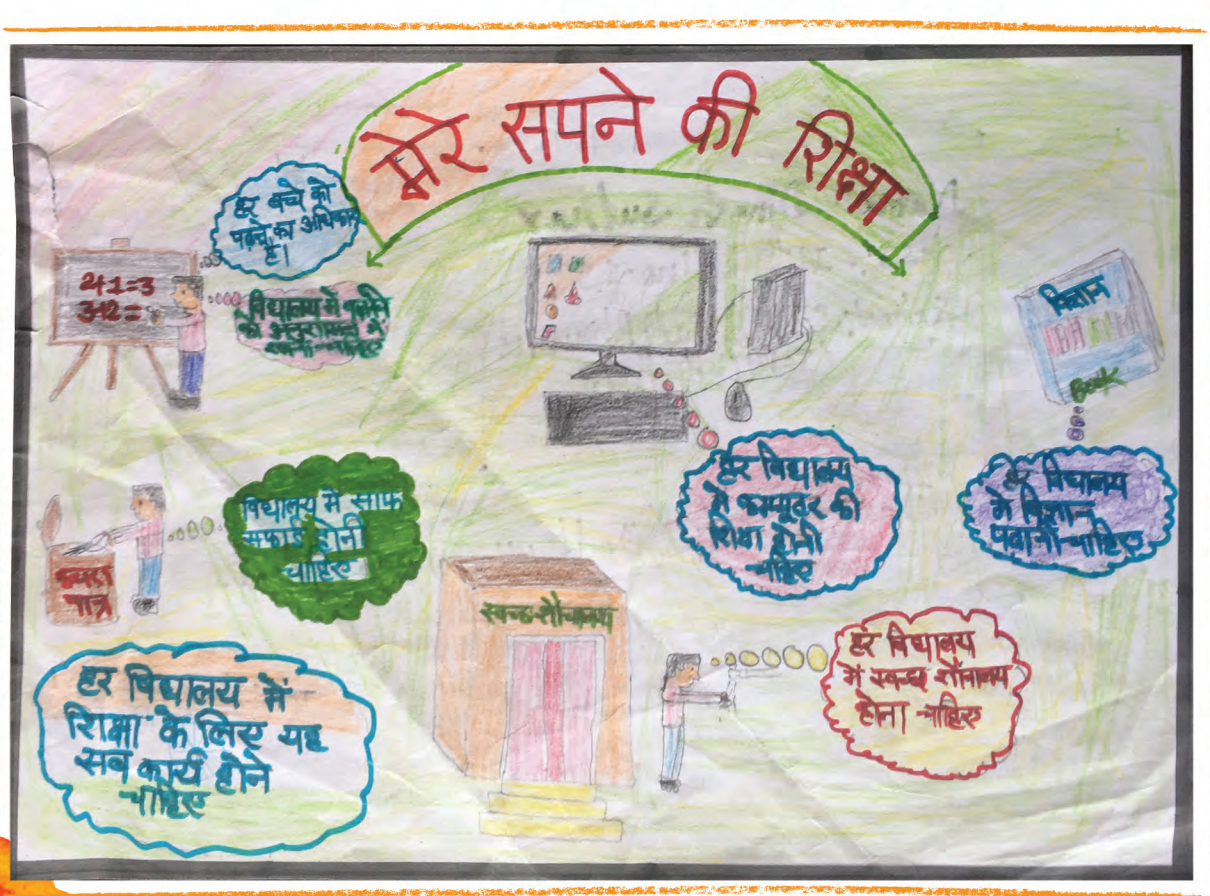 मेरे सपने की शिक्षा
हर बच्चे को
पढ़ने का अधिकार
है।
2+1=3
3+2=
विद्यालय में
को अनुशासन में
रहना चाहिए
विज्ञान
Book
विद्यालय में साफ
सफाई होनी
चाहिए
हर विद्यालय
में कम्प्यूटर की
शिक्षा होनी
चाहिए
हर विद्यालय
में विज्ञान
पढ़ानी चाहिए
कचरा
पात्र
स्वच्छ शौचालय
हर विद्यालय
में स्वच्छ शौचालय
होना चाहिए
हर विद्यालय में
शिक्षा के लिए यह
सब कार्य होने
चाहिए